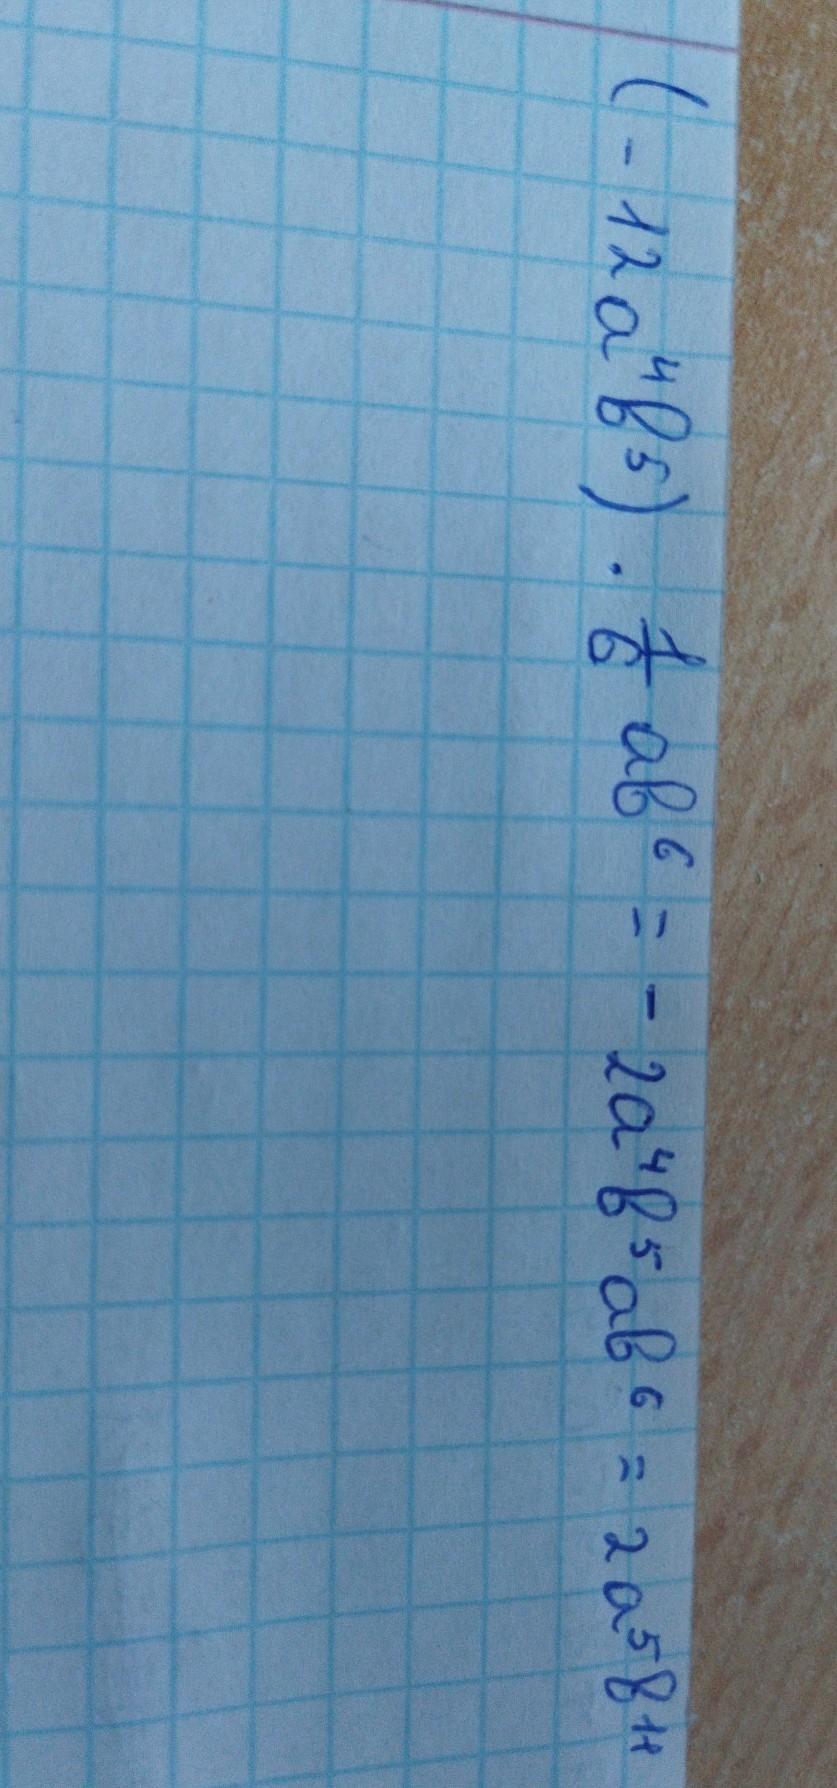 (-12a⁴b⁵) · 1/6 ab⁶ = -2a⁴b⁵ab⁶ = 2a⁵b¹¹